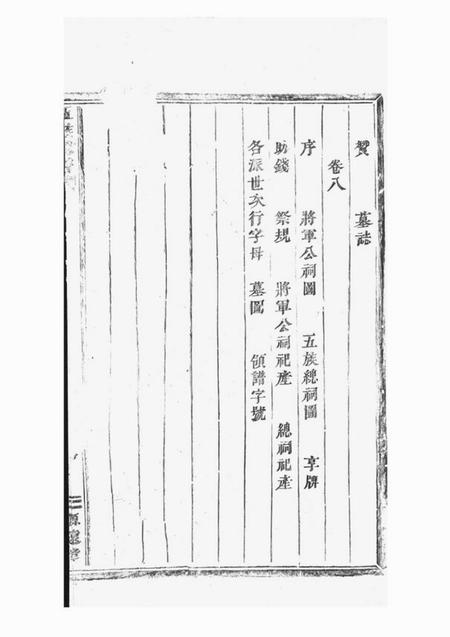 贊　墓誌
卷八
序　將軍公祠圖　五族總祠圖　享牌
助錢　祭規　將軍公祠祀產　總祠祀產
各派世次行字母　墓圖　領譜字號